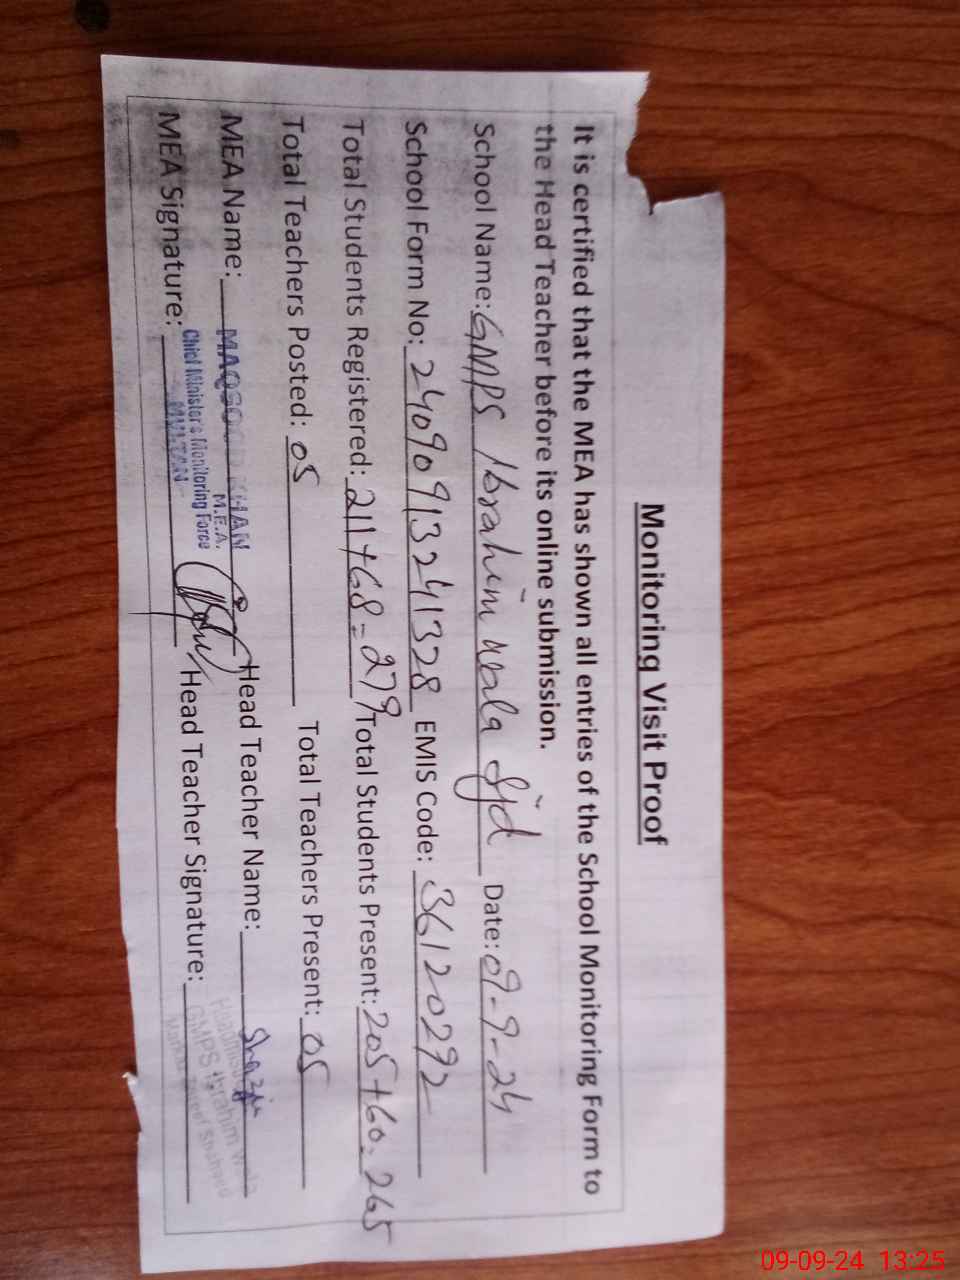 Monitoring Visit Proof
It is certified that the MEA has shown all entries of the School Monitoring Form to
the Head Teacher before its online submission.
School Name: GMPS Ibrahim Wala Sjd Date: 09-9-24
School Form No: 24090913241328 EMIS Code: 36120292
Total Students Registered: 211+68=279 Total Students Present: 205+60=265
Total Teachers Posted: 05 Total Teachers Present: 05
MEA Name: MAQSOOD KHAN Head Teacher Name: Shazia
M.E.A.
Chief Minister's Monitoring Force
MULTAN
MEA Signature: Head Teacher Signature:
GMPS Ibrahim Wala
09-09-24 13:25